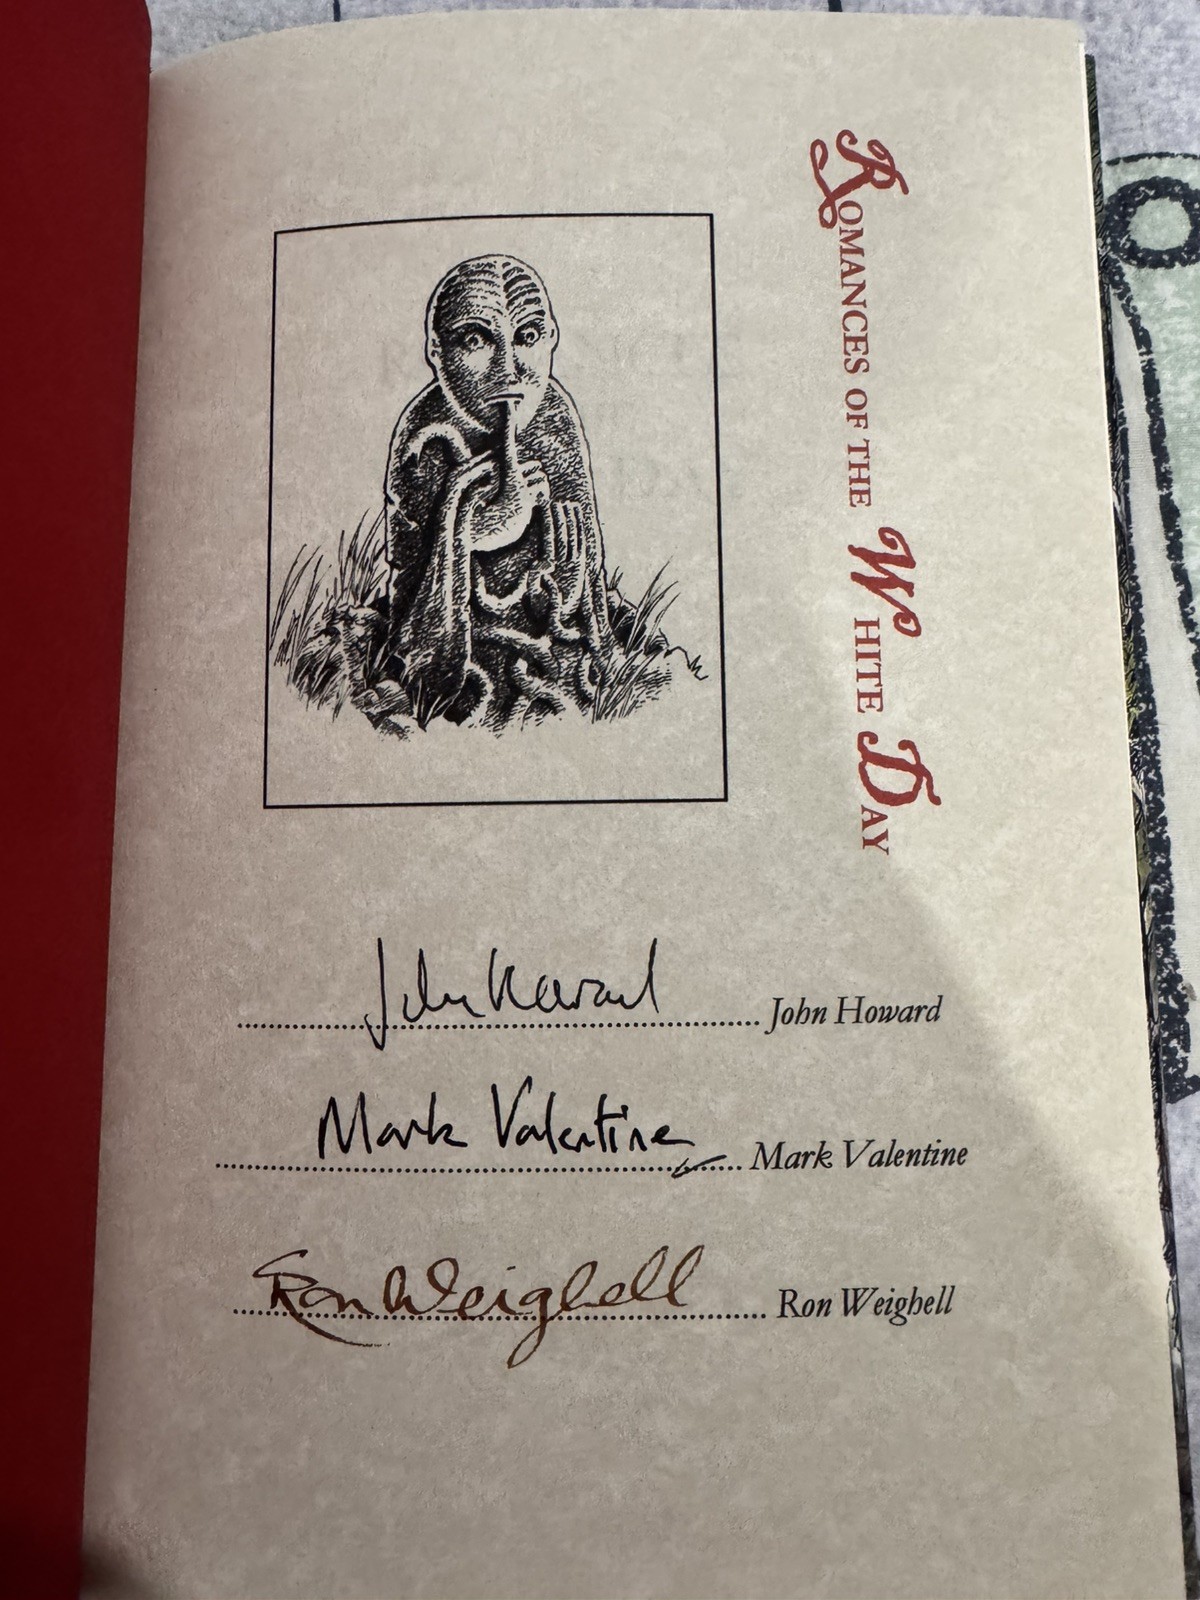 ROMANCES OF THE WHITE DAY
John Howard John Howard
Mark Valentine Mark Valentine
Ron Weighell Ron Weighell